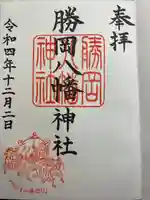 奉拝
勝岡八幡神社
勝岡
八幡
神社
令和四年十二月二日